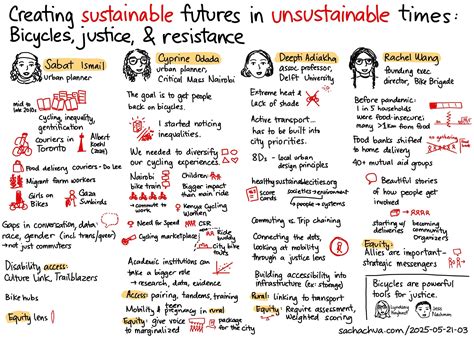 Creating sustainable futures in unsustainable times:
Bicycles, justice, & resistance
Sabat Ismail
urban planner
mid to late 2010s
Cycling, inequality,
gentrification
couriers in
Toronto
Albert
Koehl
Food delivery couriers - Do Lee
Migrant farm workers
Girls on
Bikes
Gaza
Sunbirds
Gaps in conversation, data:
race, gender (incl trans/queer)
→ not just commuters
Disability access:
Culture Link, Trailblazers
Bike hubs
Equity lens
Cyprine Odada
urban planner,
Critical Mass Nairobi
The goal is to get people
back on bicycles.
I started noticing
inequalities.
We needed to diversify
our cycling experiences.
Nairobi
bike train
Children
Bigger impact
than main ride
commute
to work
Kenya Cycling
women
Need for Speed
CSR
Cycling marketplace
Ride
weekly
city bike
outs
Academic institutions can
take a bigger role
→ research, data, evidence
Access: pairing, tandems, training
Mobility & pregnancy in rural
Equity: give voice
to marginalized
package
for the city
Deepti Adlakha
assoc. professor,
Delft University
Extreme heat &
Lack of shade
Active transport...
has to be built into
city priorities.
8Ds - local urban
design principles
healthysustainablecities.org
score
cards
societies → environment
→ people → systems
Commuting vs. Trip chaining
Connecting the dots,
looking at mobility
through a justice lens
Building accessibility into
infrastructure (ex: storage)
Rural: linking to transport
Equity: Require assessment,
weighted scoring
Rachel Wang
founding exec
director, Bike Brigade
Before pandemic:
1 in 5 households
were food-insecure;
many >1km from food
no gathering
Food banks shifted
to home delivery
40+ mutual aid groups
Beautiful stories
of how people get
involved
starting
deliveries
becoming
community
organizers
Equity:
Allies are important -
strategic messengers
Bicycles are powerful
tools for justice.
Jess
sachachua.com/2025-05-21-03